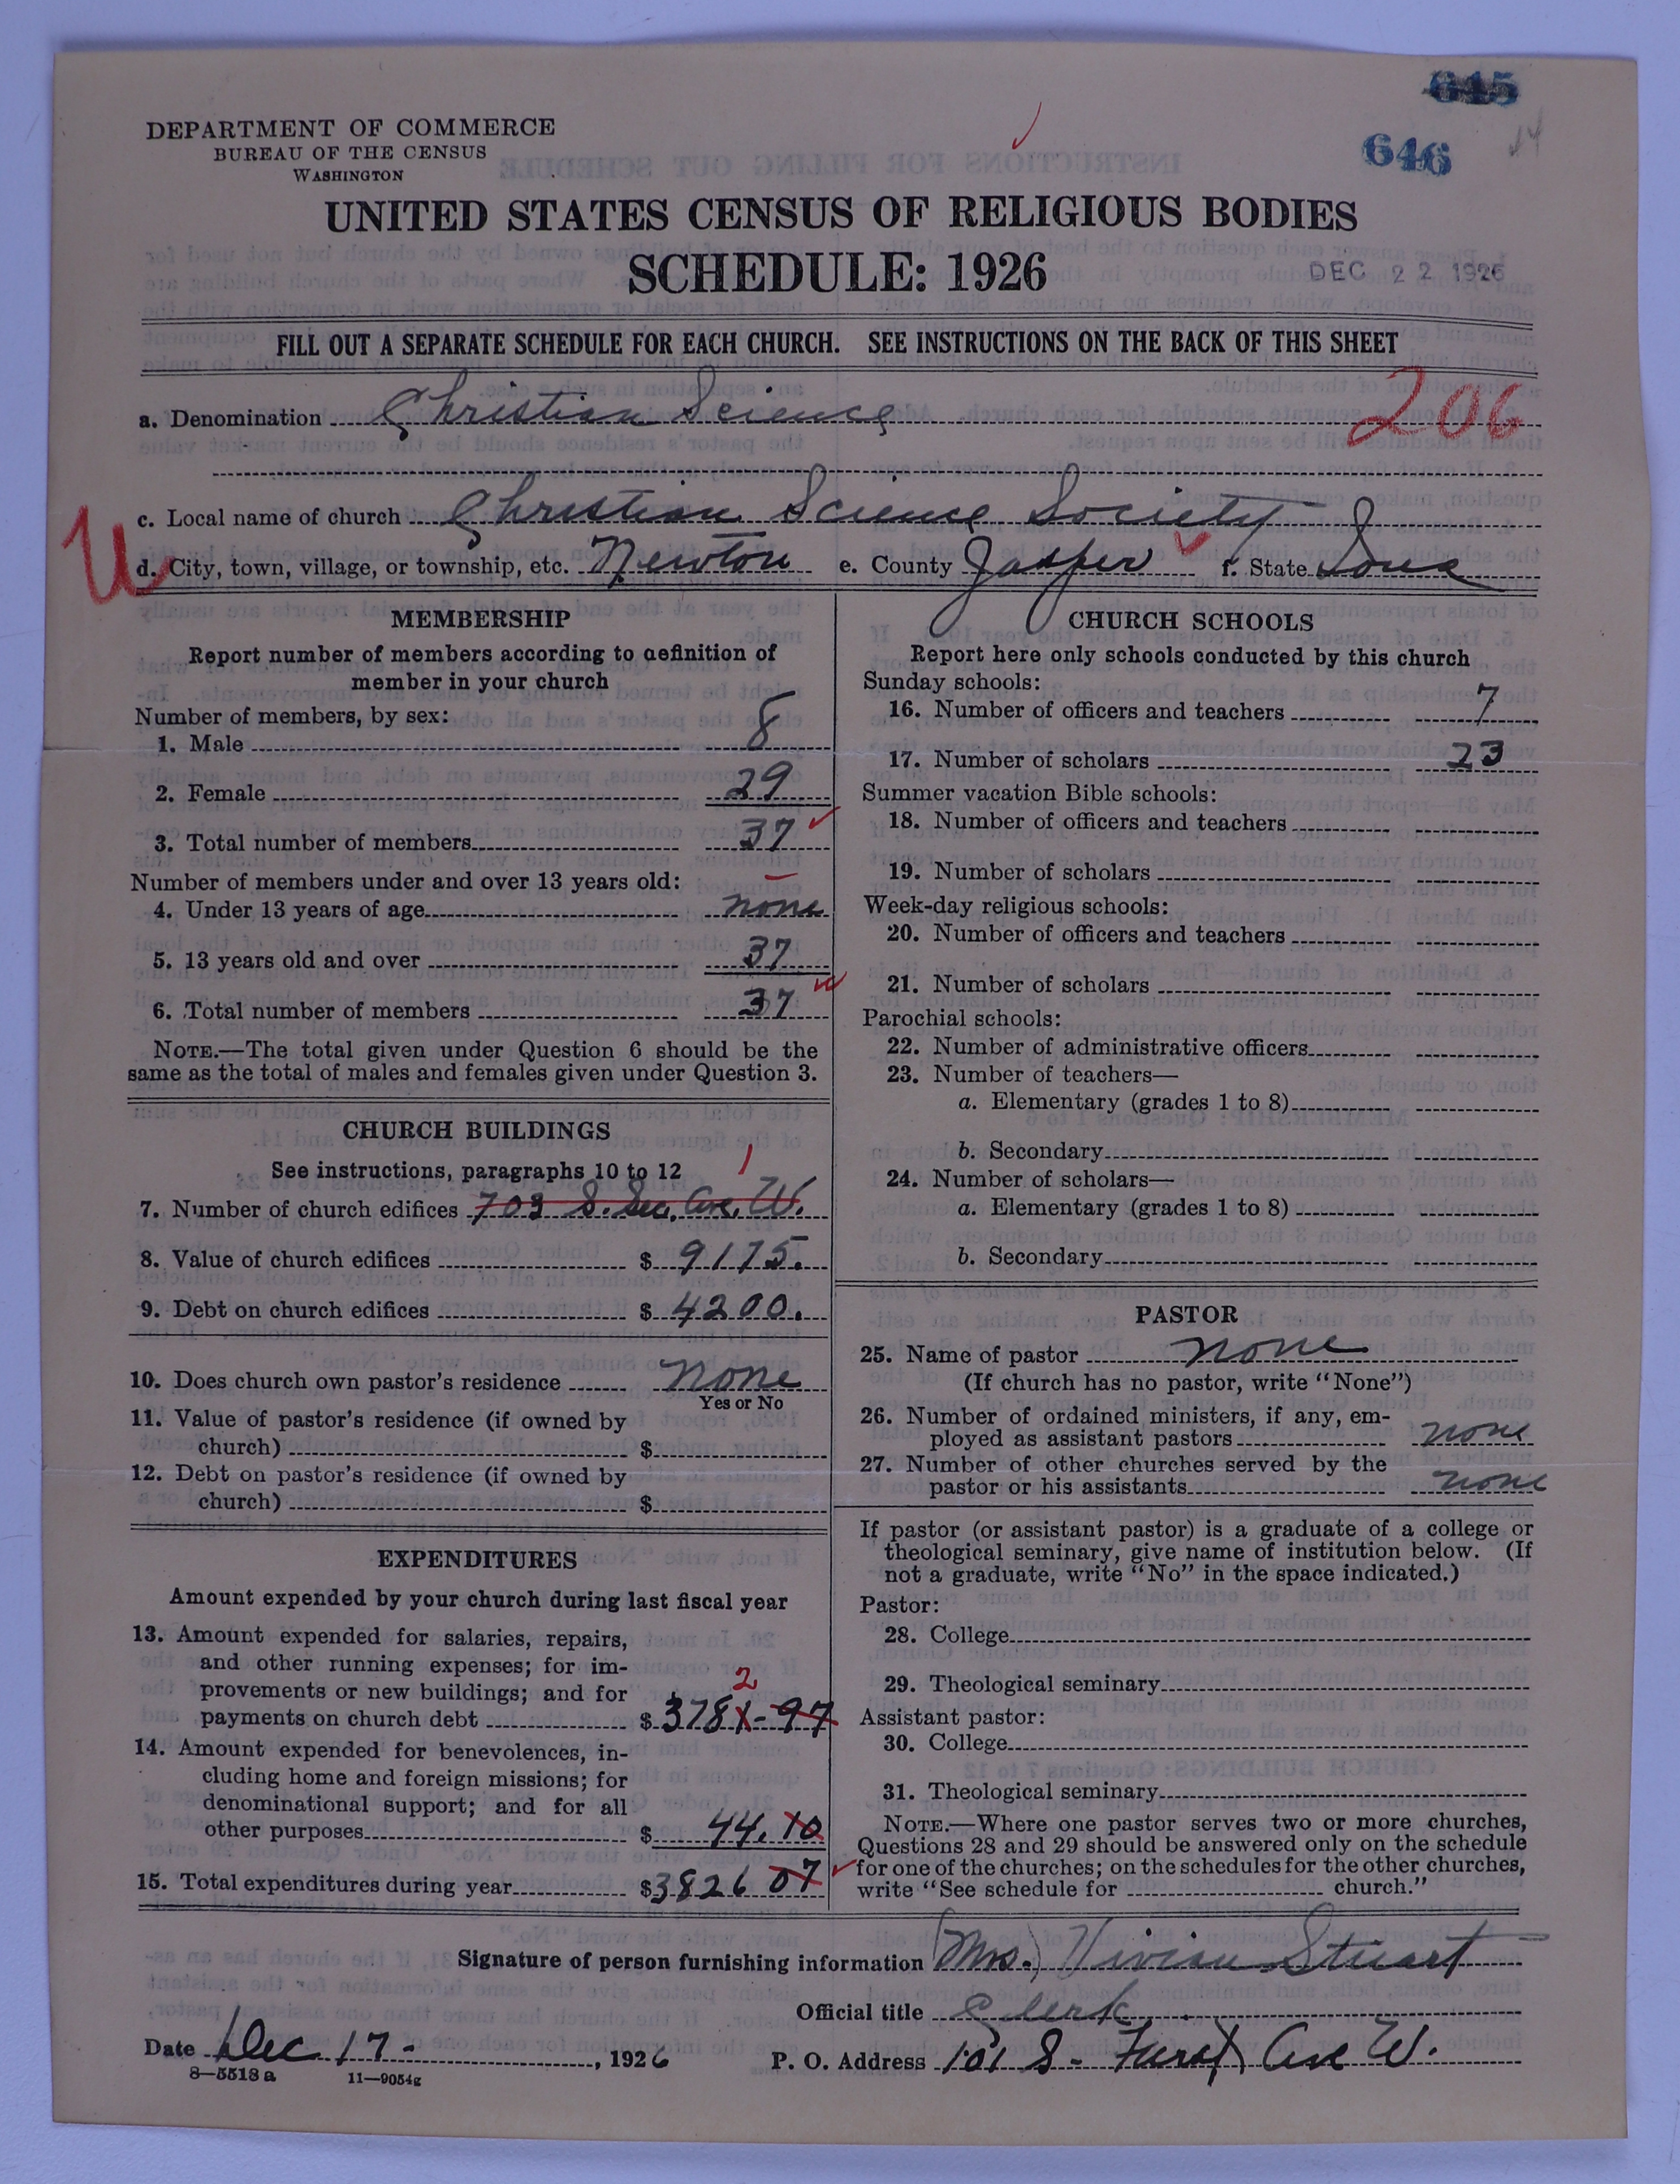 645
646
14
DEPARTMENT OF COMMERCE
BUREAU OF THE CENSUS
WASHINGTON
UNITED STATES CENSUS OF RELIGIOUS BODIES
SCHEDULE: 1926
DEC 22 1926
FILL OUT A SEPARATE SCHEDULE FOR EACH CHURCH. SEE INSTRUCTIONS ON THE BACK OF THIS SHEET
a. Denomination Christian Science
206
c. Local name of church Christian Science Society
U
d. City, town, village, or township, etc. Newton e. County Jasper f. State Iowa
MEMBERSHIP
Report number of members according to definition of
member in your church
Number of members, by sex:
1. Male 8
2. Female 29
3. Total number of members 37
Number of members under and over 13 years old:
4. Under 13 years of age none
5. 13 years old and over 37
6. Total number of members 37
NOTE.—The total given under Question 6 should be the
same as the total of males and females given under Question 3.
CHURCH BUILDINGS
See instructions, paragraphs 10 to 12
1
7. Number of church edifices 703 S. Sec. Ave. W.
8. Value of church edifices $ 9175.
9. Debt on church edifices $ 4200.
10. Does church own pastor's residence none
Yes or No
11. Value of pastor's residence (if owned by
church) $
12. Debt on pastor's residence (if owned by
church) $
EXPENDITURES
Amount expended by your church during last fiscal year
13. Amount expended for salaries, repairs,
and other running expenses; for im-
provements or new buildings; and for
2
payments on church debt $ 3781-97
14. Amount expended for benevolences, in-
cluding home and foreign missions; for
denominational support; and for all
other purposes $ 44.10
15. Total expenditures during year $3826 07
CHURCH SCHOOLS
Report here only schools conducted by this church
Sunday schools:
16. Number of officers and teachers 7
17. Number of scholars 23
Summer vacation Bible schools:
18. Number of officers and teachers
19. Number of scholars
Week-day religious schools:
20. Number of officers and teachers
21. Number of scholars
Parochial schools:
22. Number of administrative officers
23. Number of teachers—
a. Elementary (grades 1 to 8)
b. Secondary
24. Number of scholars—
a. Elementary (grades 1 to 8)
b. Secondary
PASTOR
25. Name of pastor none
(If church has no pastor, write "None")
26. Number of ordained ministers, if any, em-
ployed as assistant pastors none
27. Number of other churches served by the
pastor or his assistants none
If pastor (or assistant pastor) is a graduate of a college or
theological seminary, give name of institution below. (If
not a graduate, write "No" in the space indicated.)
Pastor:
28. College
29. Theological seminary
Assistant pastor:
30. College
31. Theological seminary
NOTE.—Where one pastor serves two or more churches,
Questions 28 and 29 should be answered only on the schedule
for one of the churches; on the schedules for the other churches,
write "See schedule for church."
Signature of person furnishing information (Mrs.) Vivian Stuart
Official title Clerk
Date Dec 17-, 1926
P. O. Address 101 S- First Ave W.
8—5518 a 11—9054g